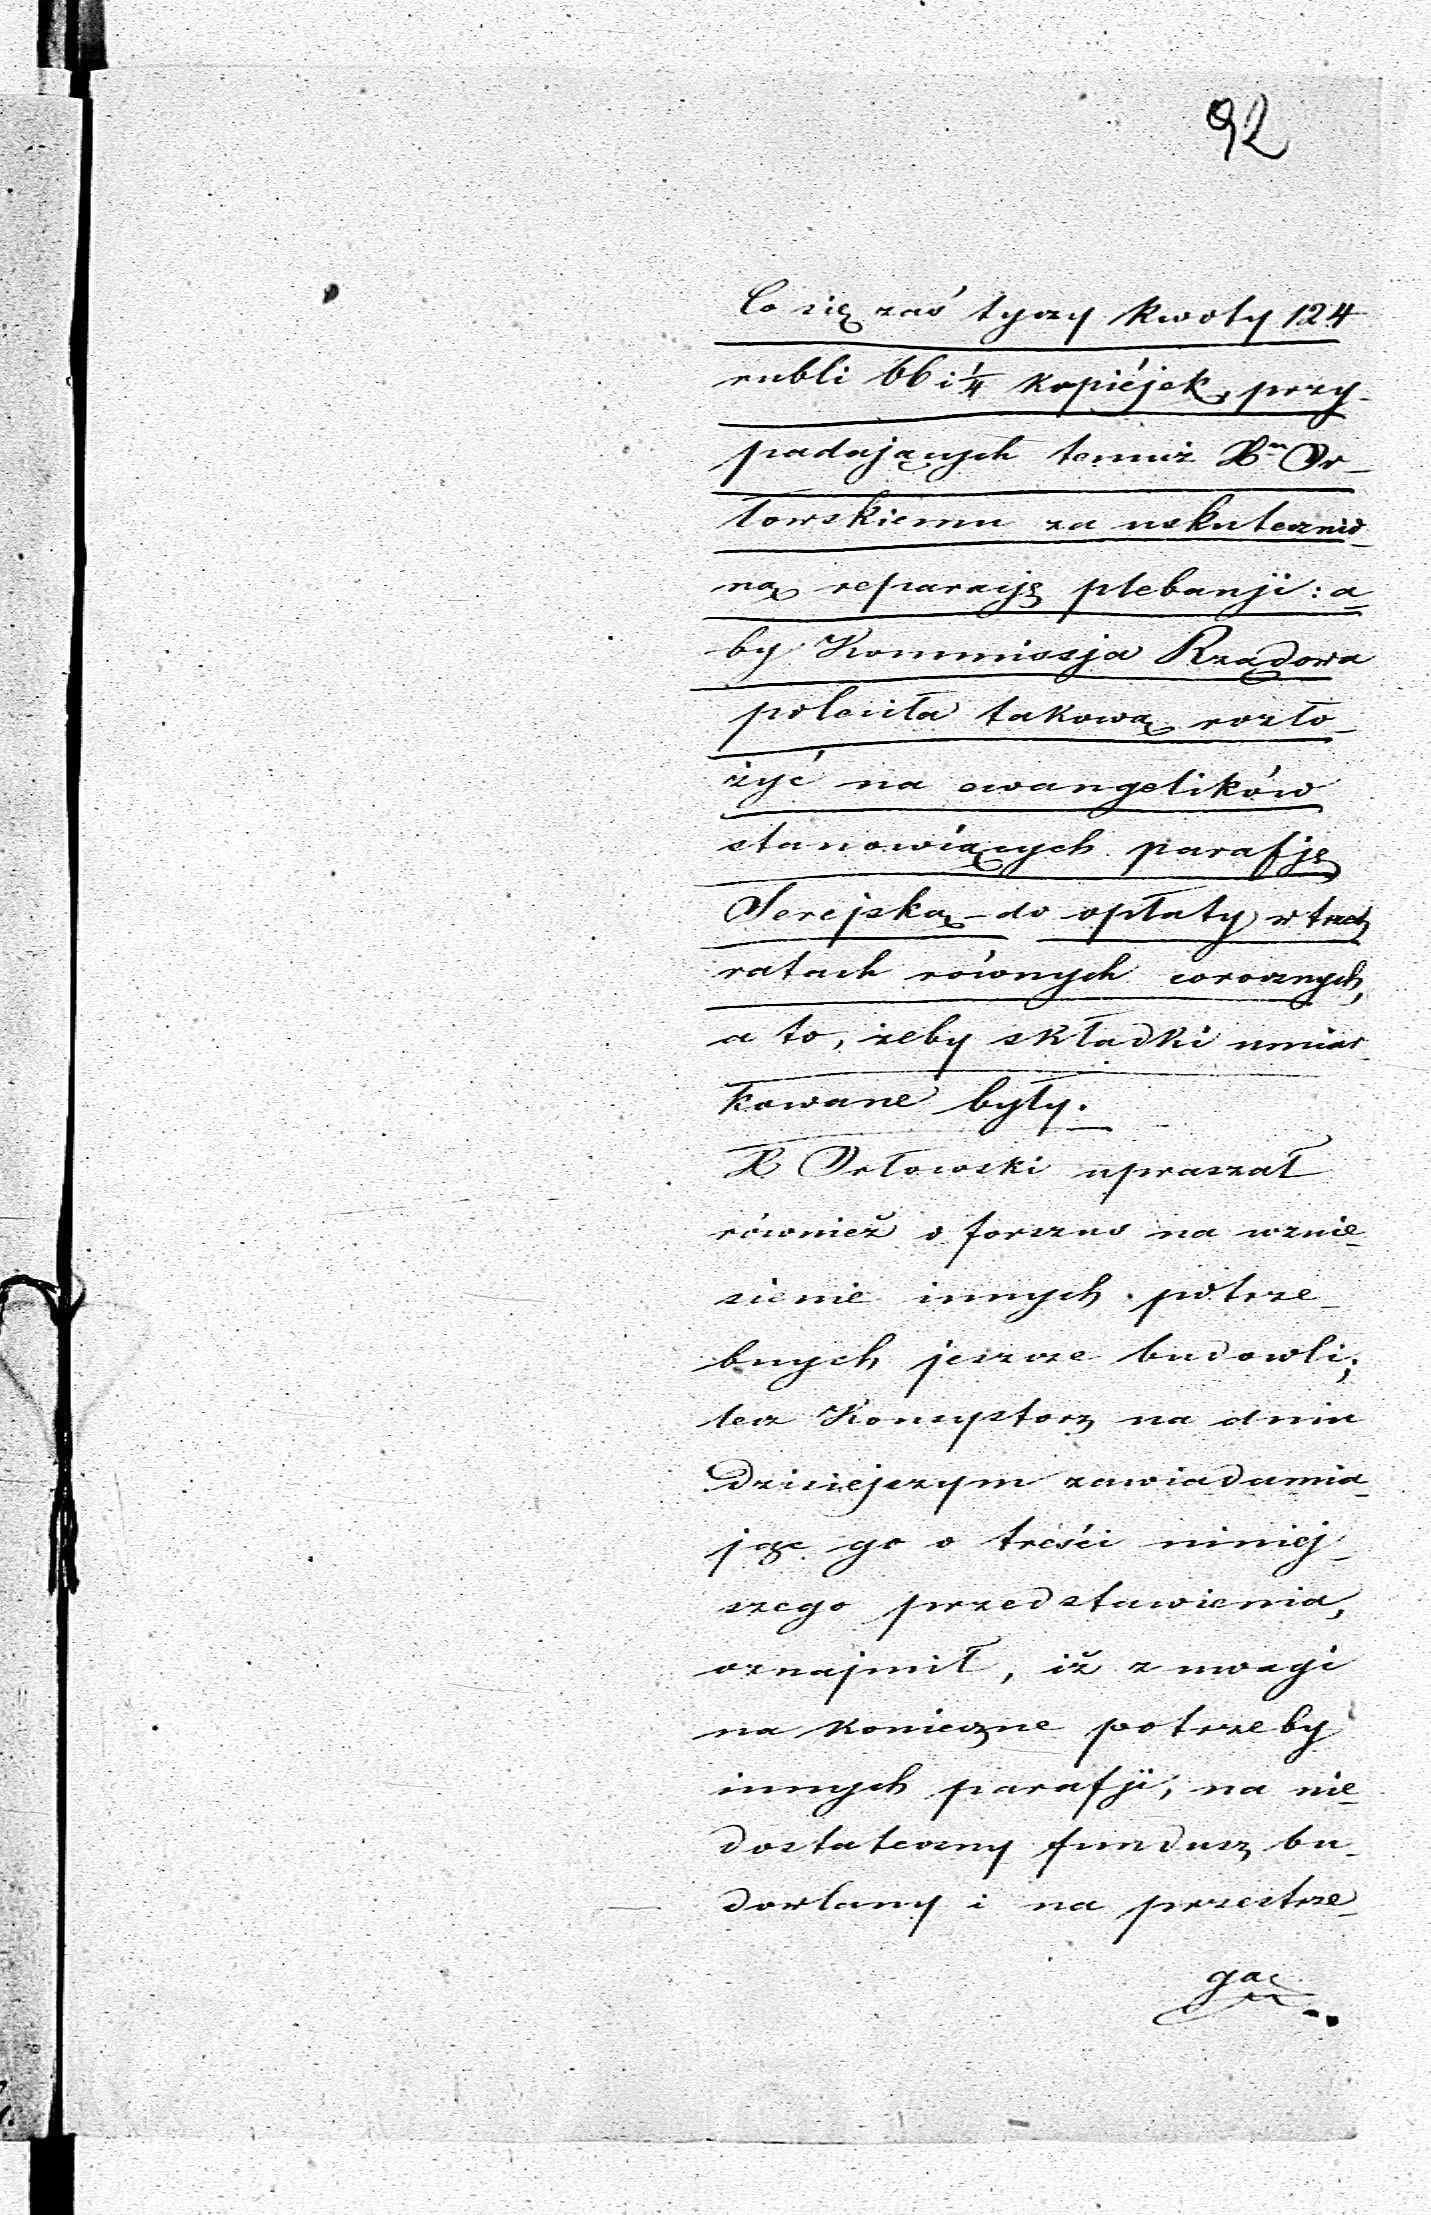 92
Co się zaś tyczy kwoty 124
rubli 66 i 1/4 kopiéjek, przy-
padających temuż Xu Or-
łowskiemu za uskutecznio-
ną reparację plebanji: a-
by Kommissja Rządowa
poleciła takową rozło-
żyć na ewangelików
stanowiących parafję
Serejską – do opłaty w trzech
ratach równych corocznych,
a to, żeby składki umiar-
kowane były.
X Orłowski upraszał
również o forszus na wznie-
sienie innych potrze-
bnych jeszcze budowli;
lecz Konsystorz na dniu
dzisiejszym zawiadamia-
jąc go o treści niniej-
szego przedstawienia,
oznajmił, iż z uwagi
na konieczne potrzeby
innych parafji, na nie-
dostateczny fundusz bu-
dowlany i na przestrze-
gac